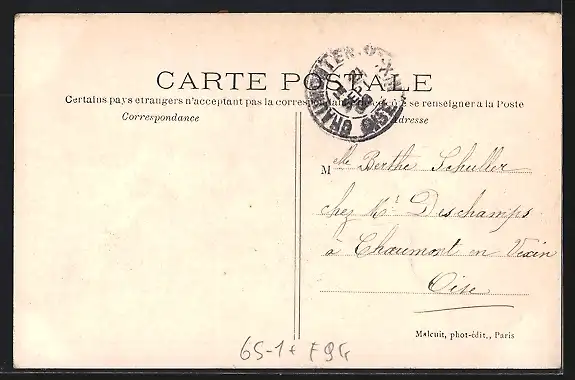 CARTE POSTALE
Certains pays etrangers n'acceptant pas la correspondance se renseigner a la Poste
Correspondance
Adresse
CHAUMONT EN VEXIN
OISE
Mlle Berthe Schuller
chez Mr Deschamps
à Chaumont en Vexin
Oise
Malcuit, phot-édit., Paris
65-1+